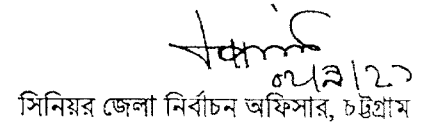 ০২/৯/২১
সিনিয়র জেলা নির্বাচন অফিসার, চট্টগ্রাম